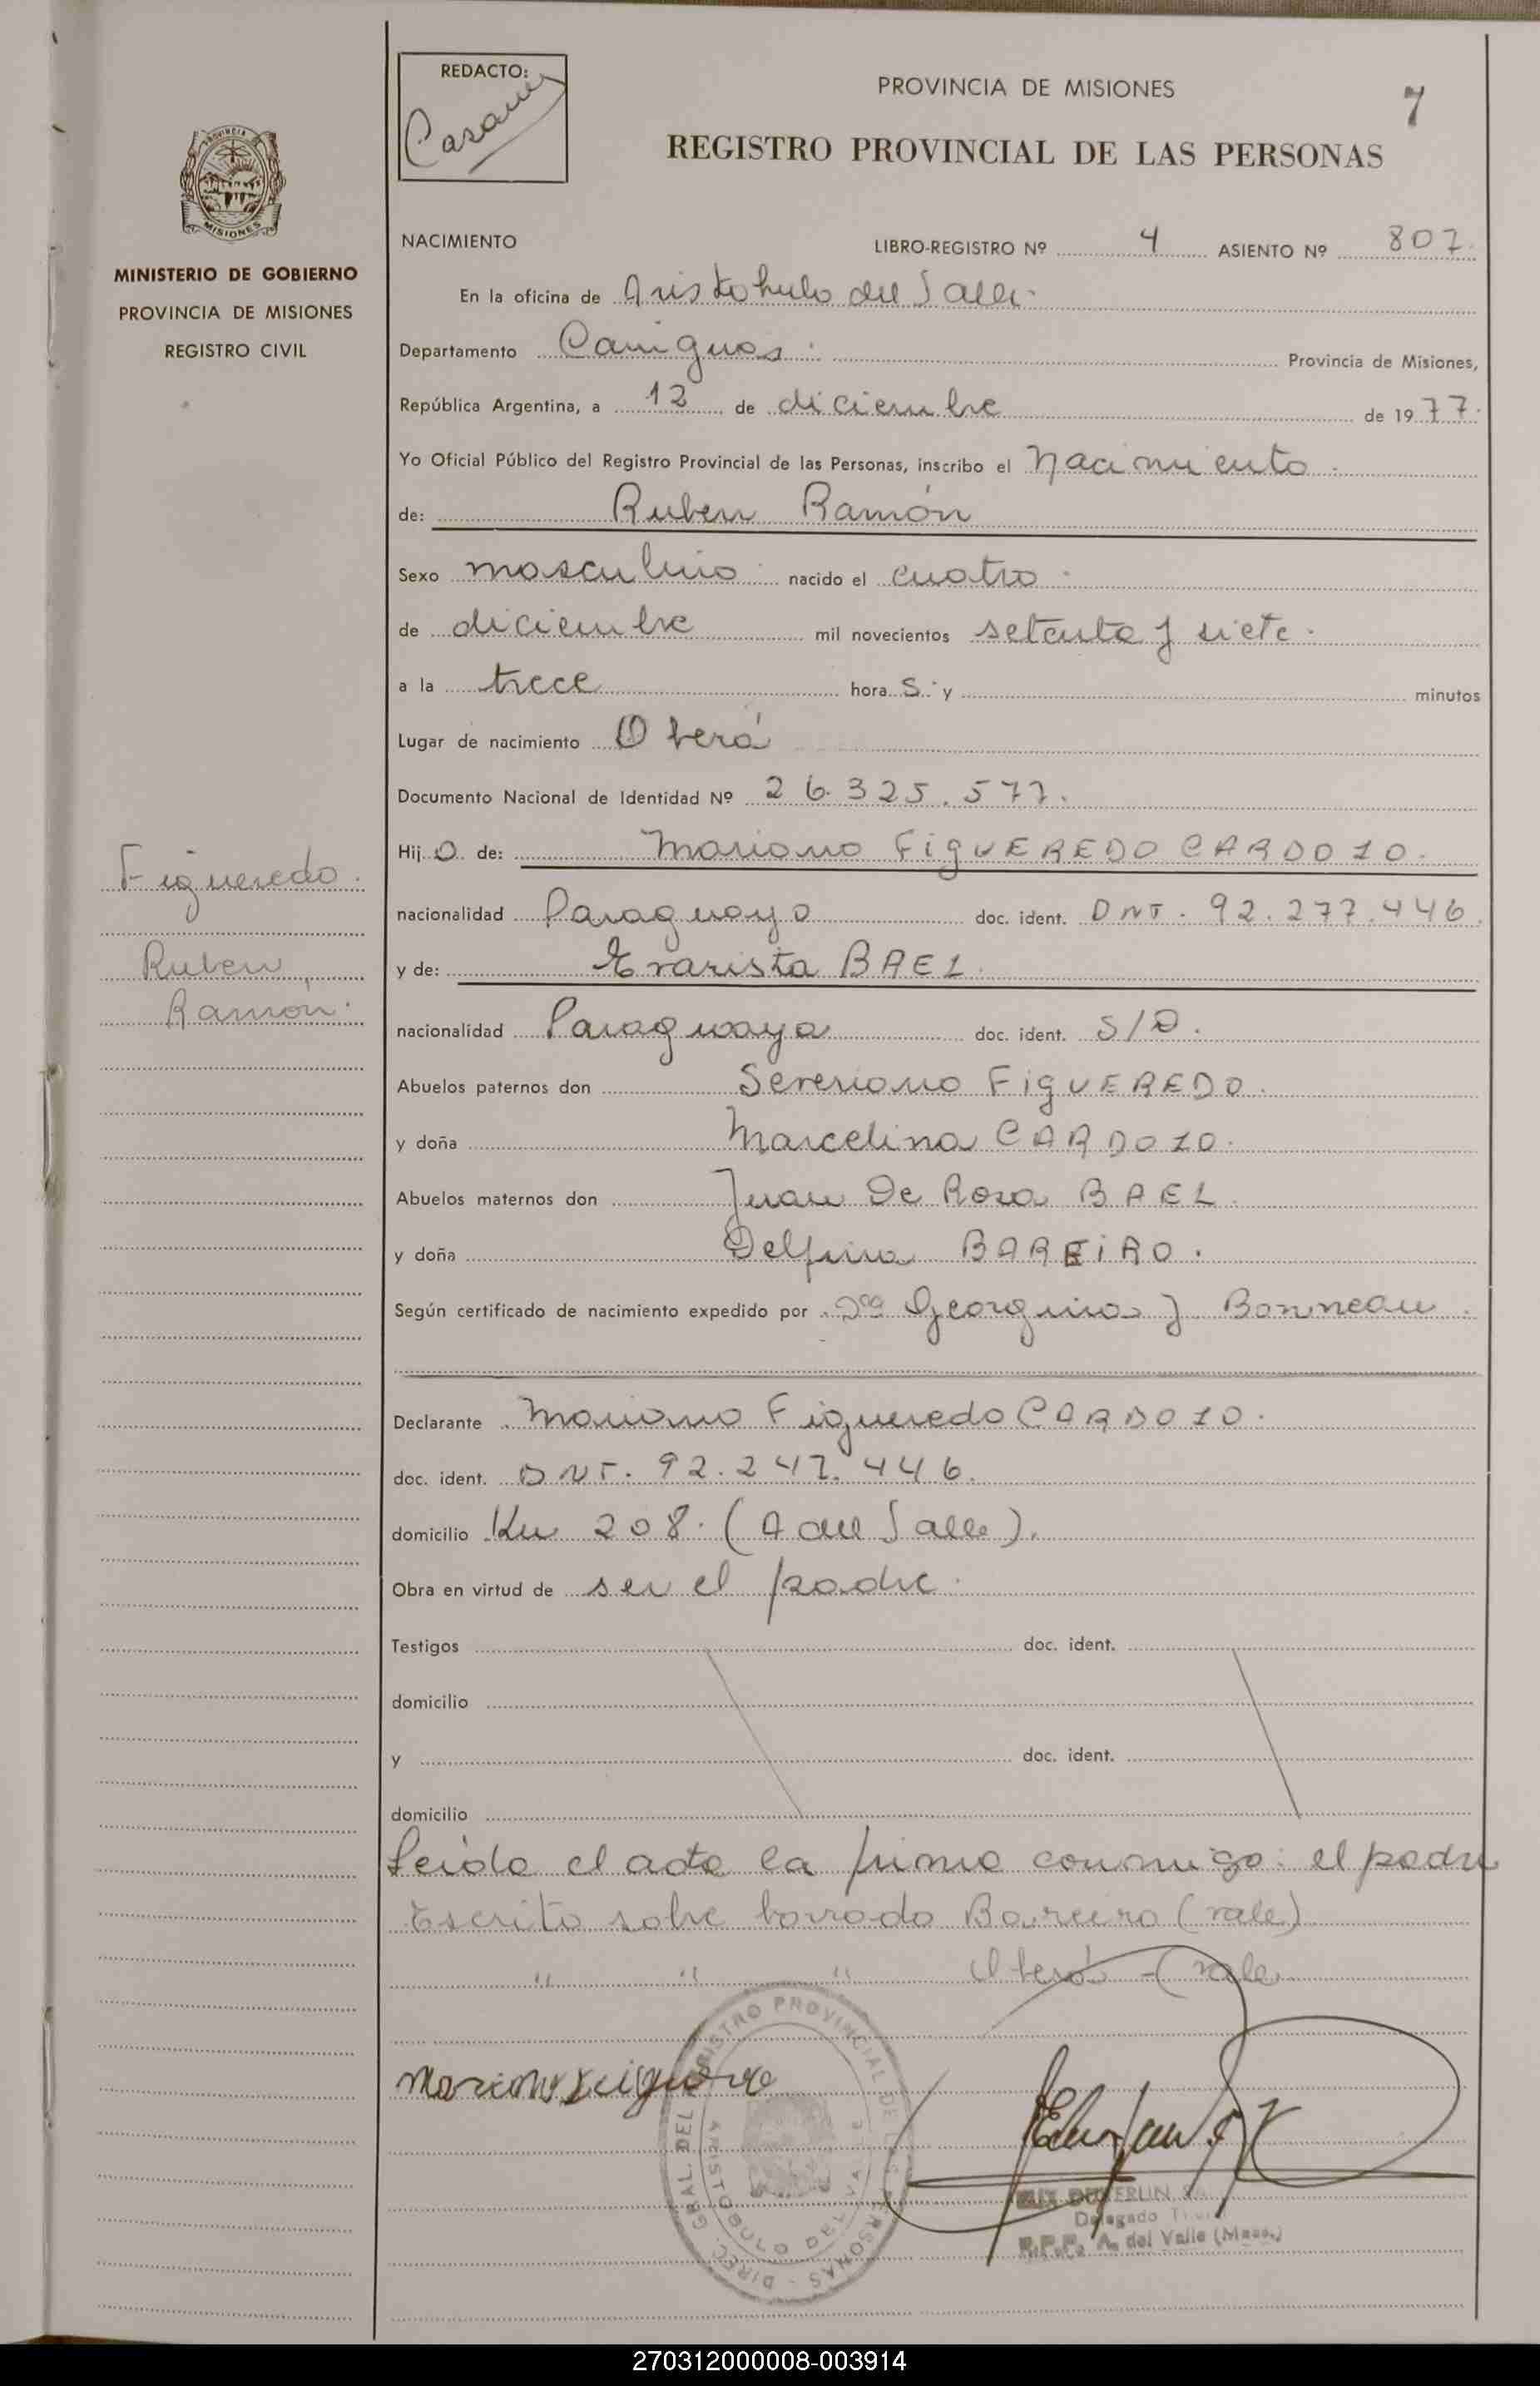 REDACTO:
PROVINCIA DE MISIONES
7
REGISTRO PROVINCIAL DE LAS PERSONAS
MISIONES
MINISTERIO DE GOBIERNO
PROVINCIA DE MISIONES
REGISTRO CIVIL
NACIMIENTO LIBRO-REGISTRO Nº 4 ASIENTO Nº 807.
En la oficina de Aristobulo del Valle.
Departamento Cainguas. Provincia de Misiones,
República Argentina, a 12 de diciembre de 1977.
Yo Oficial Público del Registro Provincial de las Personas, inscribo el Nacimiento.
de: Ruben Ramón
Sexo masculino. nacido el cuatro.
de diciembre mil novecientos setenta y siete.
a la trece hora s. y minutos
Lugar de nacimiento Oberá
Documento Nacional de Identidad Nº 26.325.577.
Hij o de: Mariano FIGUEREDO CARDOZO.
Figueredo.
Ruben
Ramón.
nacionalidad Paraguayo doc. ident. DNI. 92.277.446.
y de: Evarista BAEZ.
nacionalidad Paraguaya doc. ident. S/D.
Abuelos paternos don Severiano FIGUEREDO.
y doña Marcelina CARDOZO.
Abuelos maternos don Juan De Rosa BAEZ.
y doña Delfina BAREIRO.
Según certificado de nacimiento expedido por Dra Georgina J Bonneau.
Declarante Mariano Figueredo CARDOZO.
doc. ident. DNI. 92.247.446.
domicilio Km 208. (A del Valle).
Obra en virtud de ser el padre.
Testigos doc. ident.
domicilio
y doc. ident.
domicilio
Leida el acta la firma conmigo: el padre
Escrito sobre borrado Bareiro (vale)
" " " Oberá - (vale
DIREC. GRAL. DEL REGISTRO PROVINCIAL DE LAS PERSONAS
ARISTOBULO DEL VALLE
Delegado
R.P.P. A. del Valle (Mnes.)
270312000008-003914